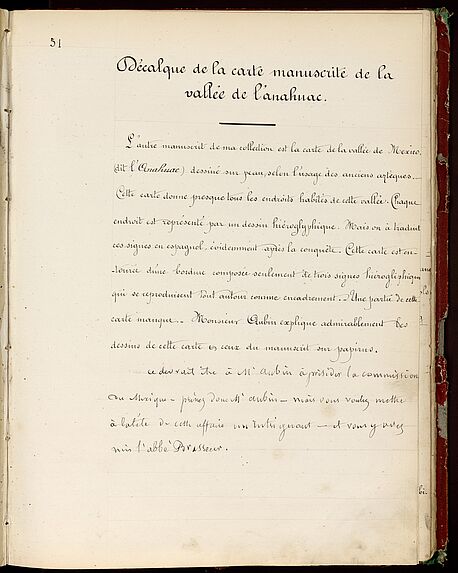 51
Décalque de la carte manuscrite de la
vallée de l'anahuac.
L'autre manuscrit de ma collection est la carte de la vallée de Mexico,
(dit l'Anahuac) dessiné sur peau, selon l'usage des anciens aztèques.
Cette carte donne presque tous les endroits habités de cette vallée. Chaque
endroit est représenté par un dessin hiéroglyphique. Mais on a traduit
ces signes en espagnol, évidemment après la conquête. Cette carte est en-
tourée d'une bordure composée seulement de trois signes hiéroglyphiques
qui se reproduisent tout autour comme encadrement. Une partie de cette
carte manque. Monsieur Aubin explique admirablement les
dessins de cette carte et ceux du manuscrit sur papirus.
ce devrait être à Mr Aubin à présider la commission
du Mexique – prenez donc Mr Aubin – mais vous voulez mettre
à la tête de cette affaire un intriguant – et vous y avez
mis l'abbé Brasseur.